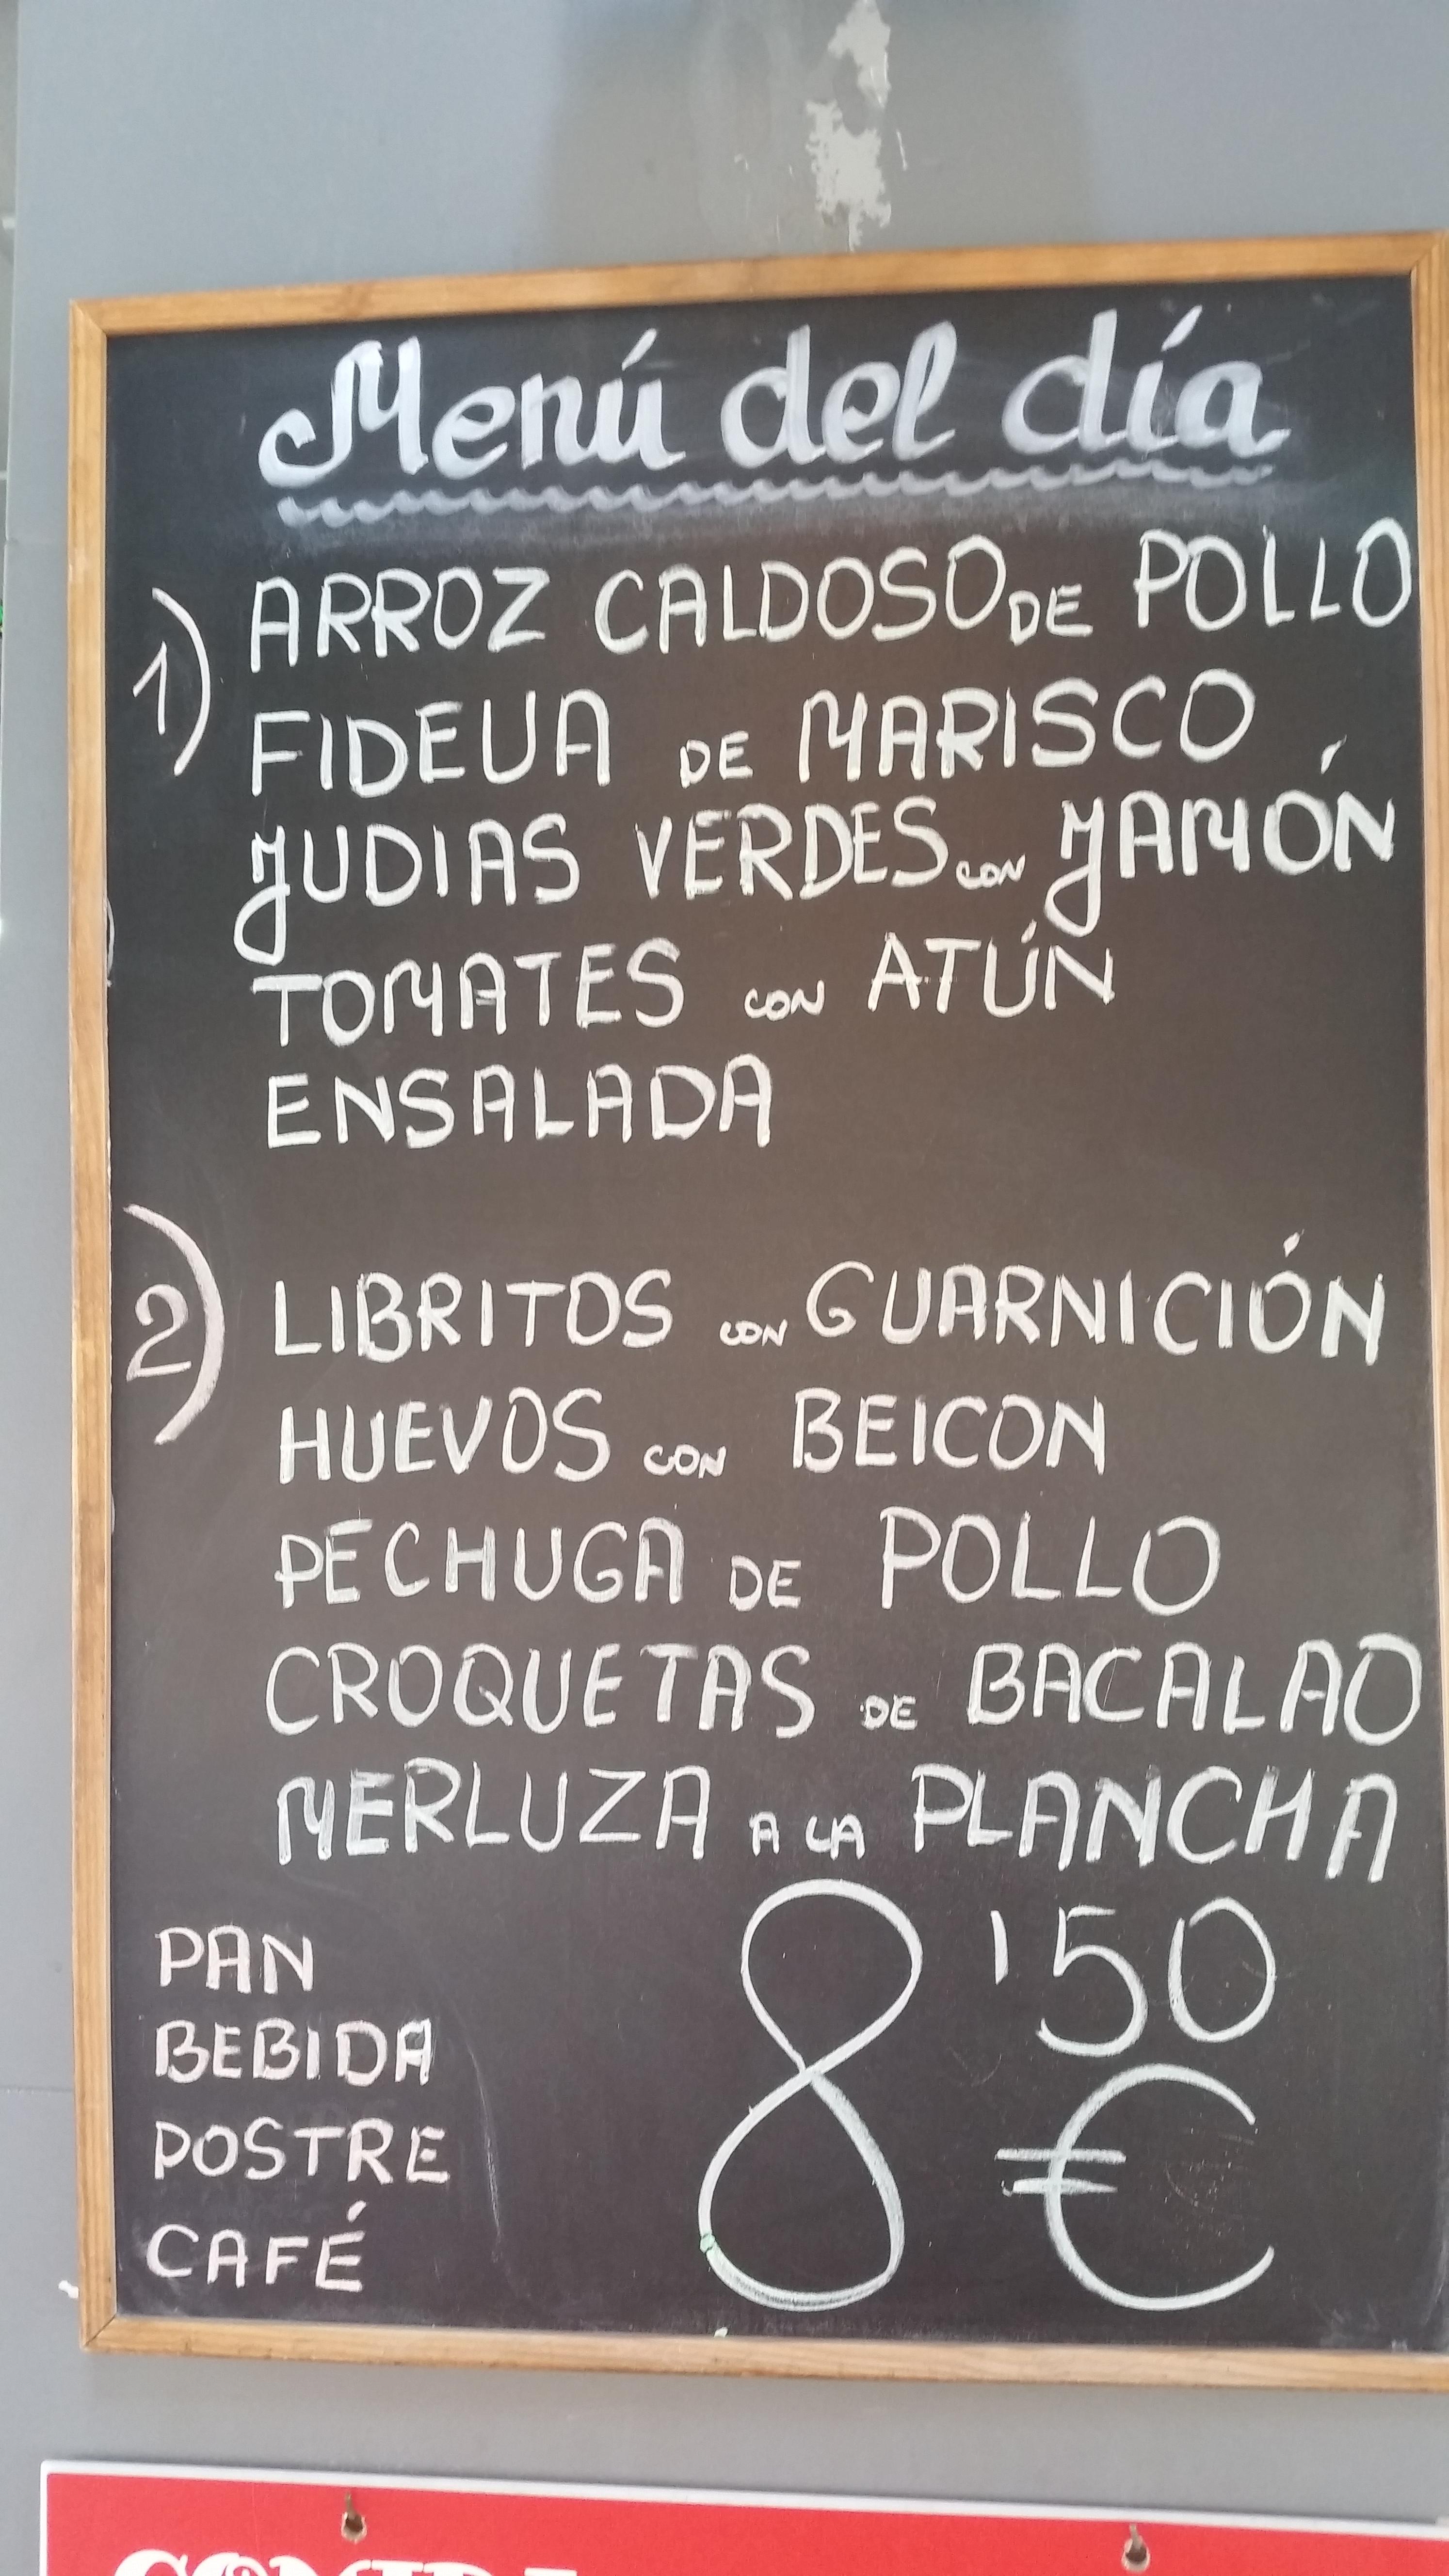 Menú del día
1) ARROZ CALDOSO DE POLLO
FIDEUA DE MARISCO
JUDIAS VERDES CON JAMÓN
TOMATES CON ATÚN
ENSALADA
2) LIBRITOS CON GUARNICIÓN
HUEVOS CON BEICON
PECHUGA DE POLLO
CROQUETAS DE BACALAO
MERLUZA A LA PLANCHA
PAN
BEBIDA
POSTRE
CAFÉ
8'50
€